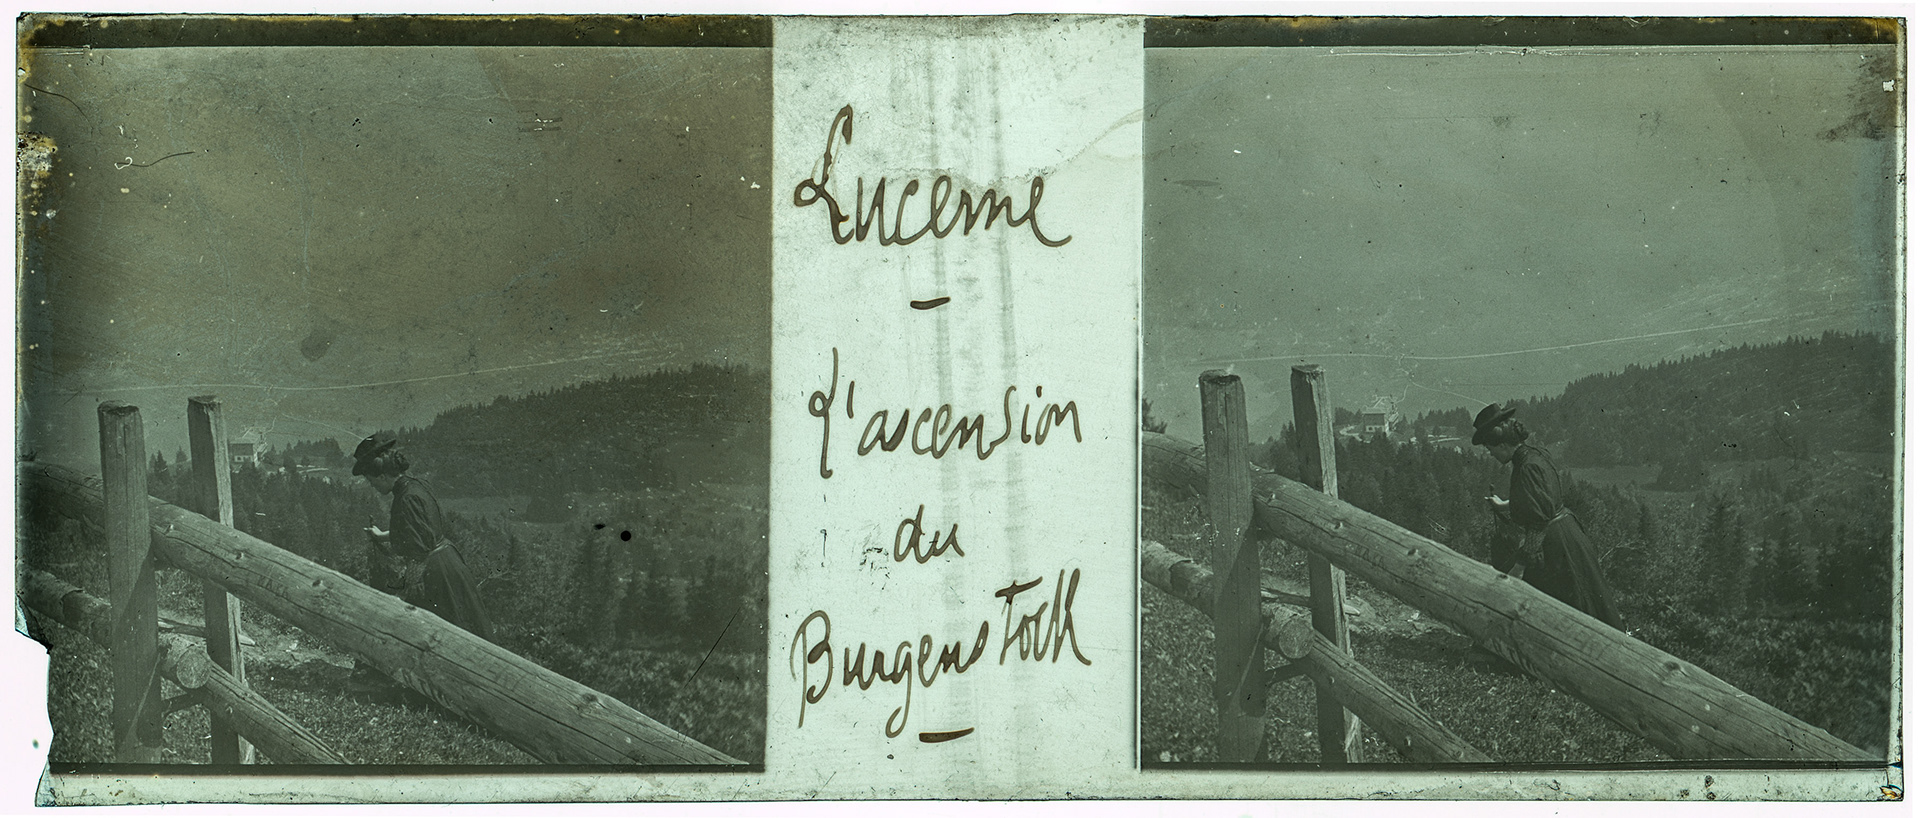 Lucerne
-
L'ascension
du
Burgenstock
-